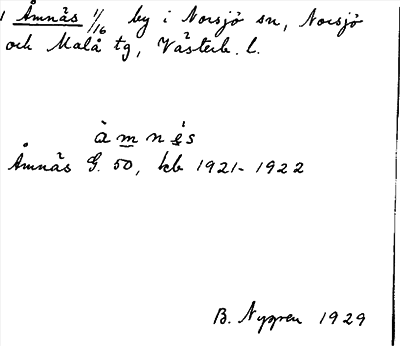 1 Åmnäs 1/16 by i Norsjö sn, Norsjö
och Malå tg, Västerb. l.
àmnès
Åmnäs G. 50, kb 1921-1922
B. Nygren 1929